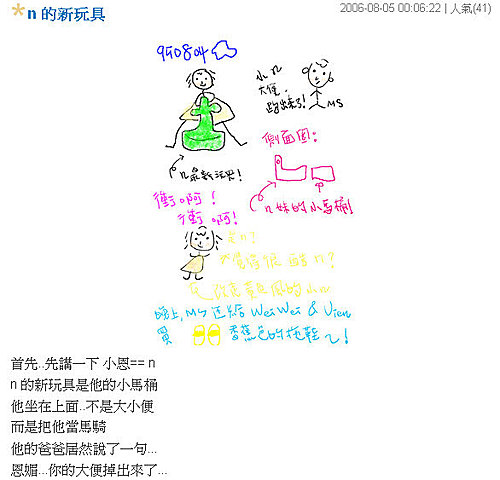 n 的新玩具
2006-08-05 00:06:22 | 人氣(41)
950804
小n
大便
跑出來了!
MS
側面圖:
n最新玩具!
n妹的小馬桶
衝啊!
衝啊!
是n?
晚上, MS 送給 Wei Wei & Vien
買 香蕉色的拖鞋~!
首先..先講一下 小恩== n
n 的新玩具是他的小馬桶
他坐在上面..不是大小便
而是把他當馬騎
他的爸爸居然說了一句...
恩媚...你的大便掉出來了...